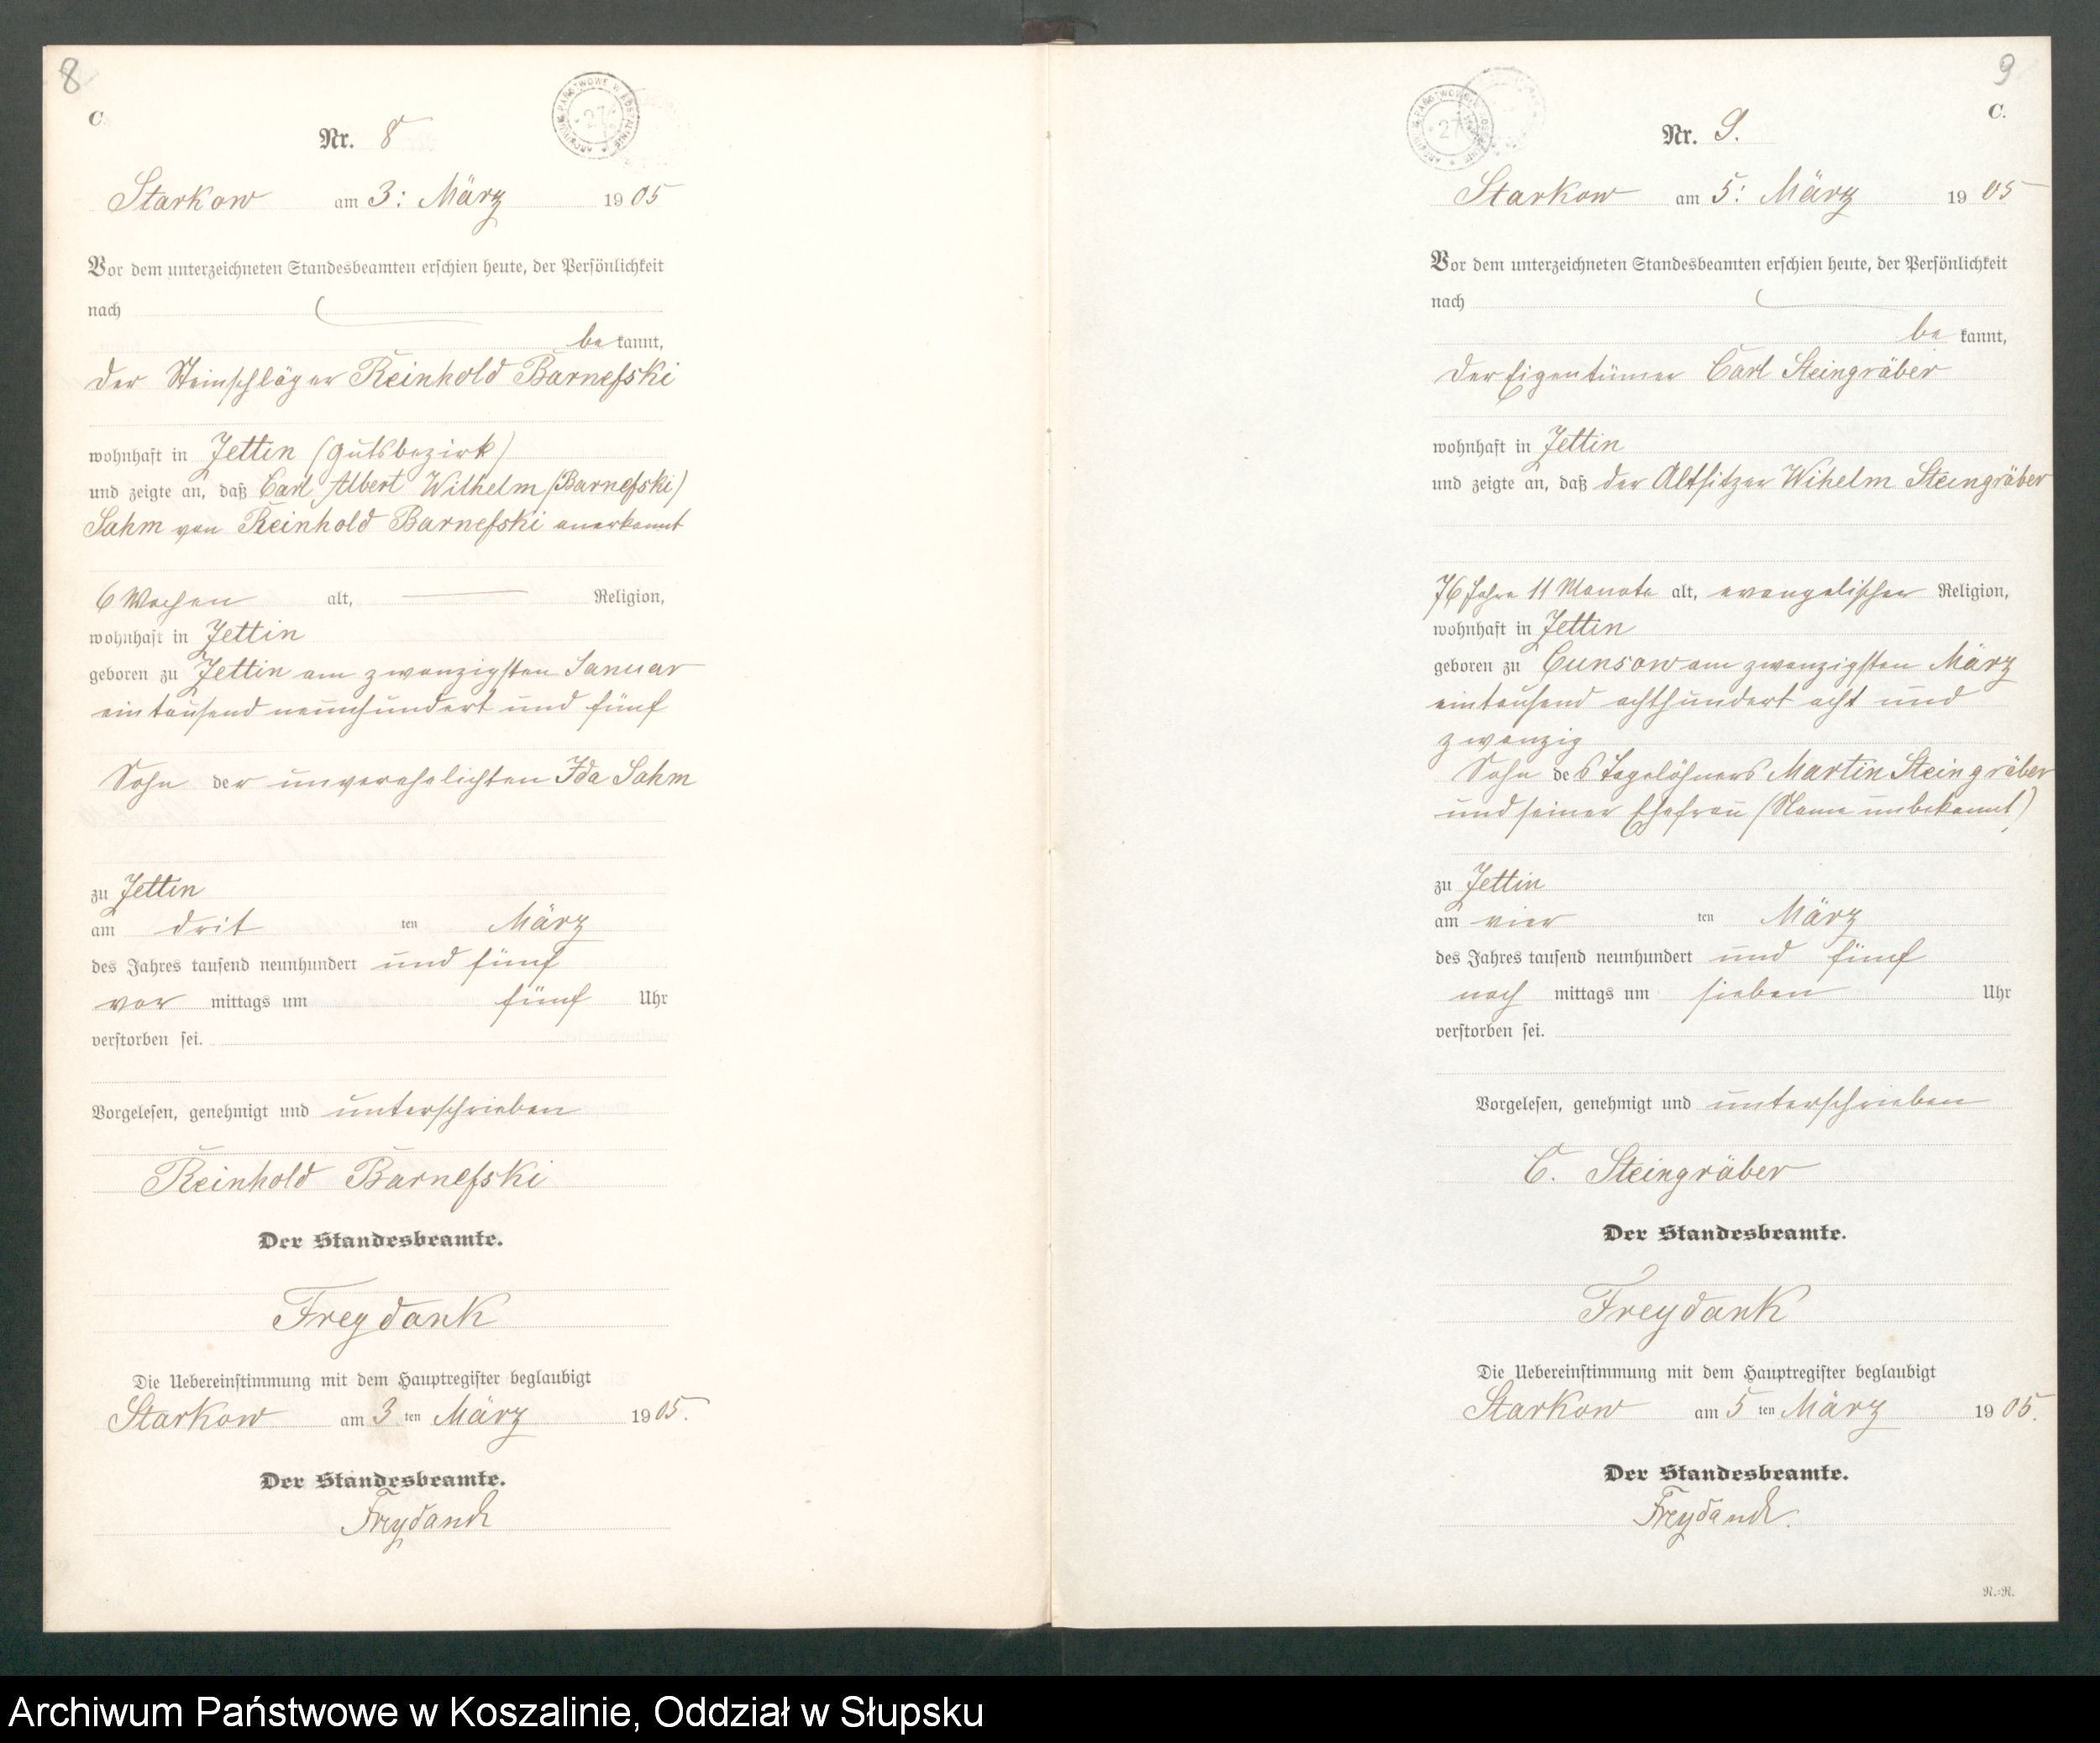 8
C.
Nr. 8
ARCHIWUM PAŃSTWOWE W KOSZALINIE
27
Starkow am 3: März 1905
Vor dem unterzeichneten Standesbeamten erschien heute, der Persönlichkeit
nach
be kannt,
der Steinschläger Reinhold Barneſski
wohnhaft in Jettin (Gutsbezirk)
und zeigte an, daß Carl Albert Wilhelm (Barneſski)
Sahm von Reinhold Barneſski anerkannt
6 Wochen alt, Religion,
wohnhaft in Jettin
geboren zu Jettin am zwanzigsten Januar
eintausend neunhundert und fünf
Sohn der unverehelichten Ida Sahm
zu Jettin
am drit ten März
des Jahres tausend neunhundert und fünf
vor mittags um fünf Uhr
verstorben sei.
Vorgelesen, genehmigt und unterschrieben
Reinhold Barneſski
Der Standesbeamte.
Freydank
Die Uebereinstimmung mit dem Hauptregister beglaubigt
Starkow am 3 ten März 1905.
Der Standesbeamte.
Freydank
9
C.
Nr. 9.
27
Starkow am 5: März 1905
Vor dem unterzeichneten Standesbeamten erschien heute, der Persönlichkeit
nach
be kannt,
der Eigentümer Carl Steingräber
wohnhaft in Jettin
und zeigte an, daß der Altsitzer Wihelm Steingräber
76 Jahre 11 Monate alt, evangelischer Religion,
wohnhaft in Jettin
geboren zu Cunsow am zwanzigsten März
eintausend achthundert acht und
zwanzig
Sohn des Tagelöhners Martin Steingräber
und seiner Ehefrau (Name unbekannt)
zu Jettin
am vier ten März
des Jahres tausend neunhundert und fünf
nach mittags um sieben Uhr
verstorben sei.
Vorgelesen, genehmigt und unterschrieben
C. Steingräber
Der Standesbeamte.
Freydank
Die Uebereinstimmung mit dem Hauptregister beglaubigt
Starkow am 5 ten März 1905.
Der Standesbeamte.
Freydank.
R.-R.
Archiwum Państwowe w Koszalinie, Oddział w Słupsku